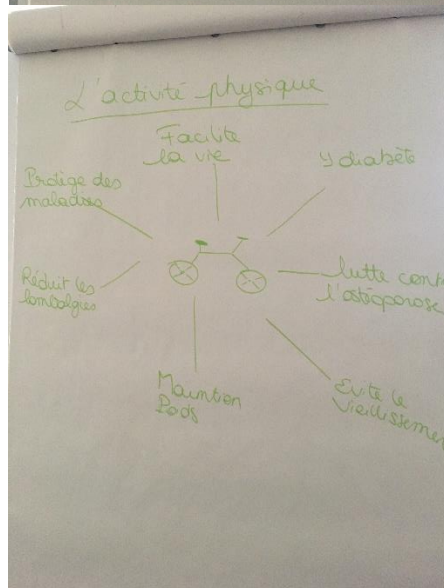 L'activité physique
Facilite
la vie
↘ diabète
Protège des
maladies
Réduit les
lombalgies
lutte cont
l'ostéoporose
Maintien
Poids
Evite le
Vieillissemen